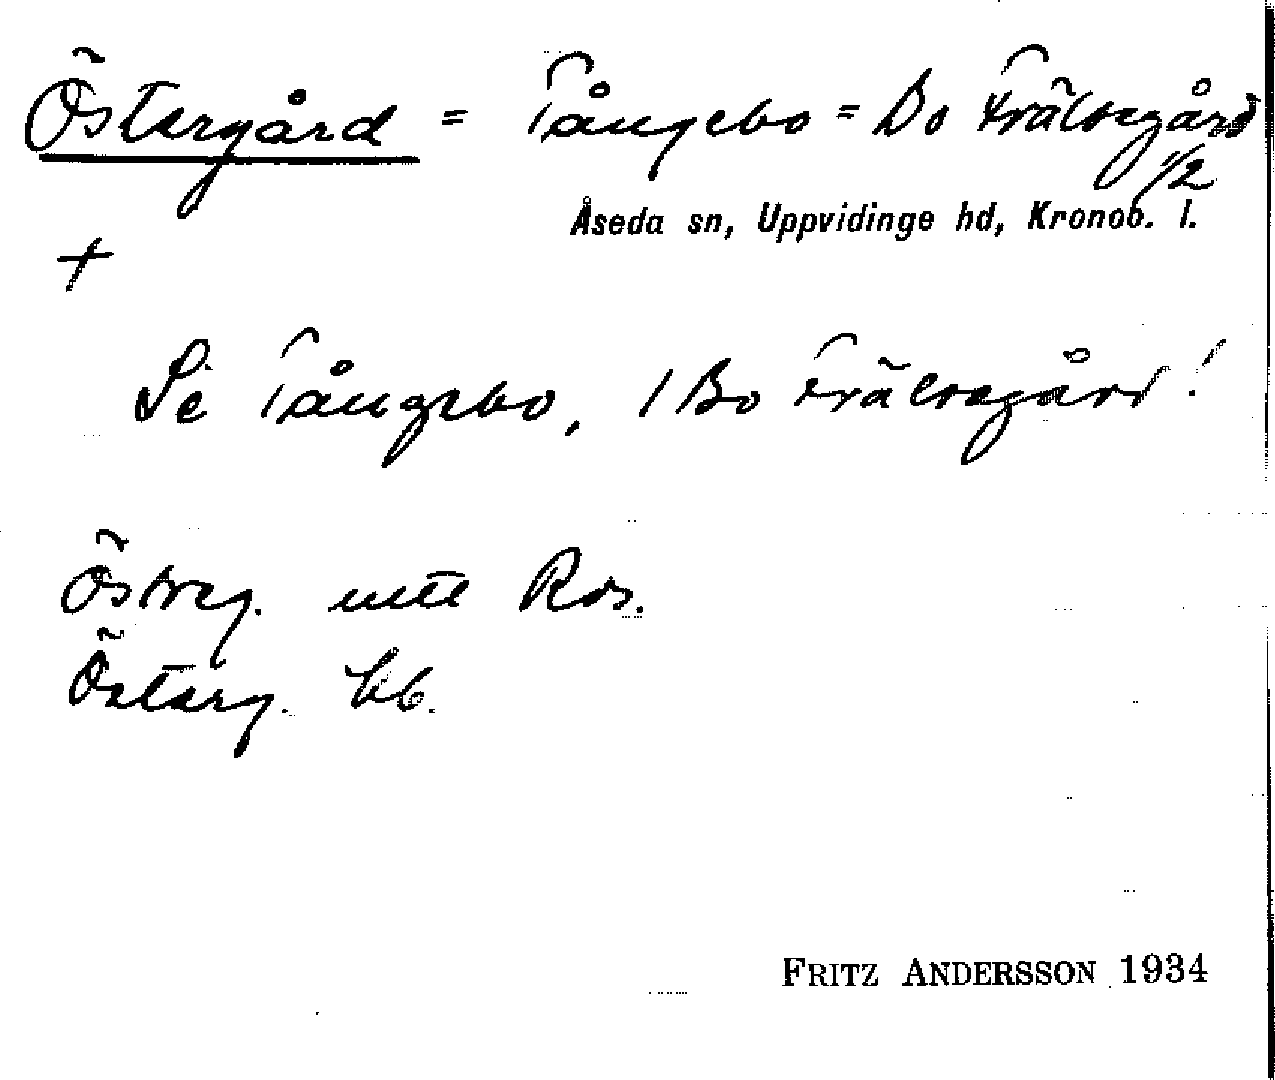 Östergård = Tångebo = Bo Frälsegård
1/2
Åseda sn, Uppvidinge hd, Kronob. l.
+
Se Tångebo, 1 Bo Frälsegård!
Östreg.
Österg.
FRITZ ANDERSSON 1934